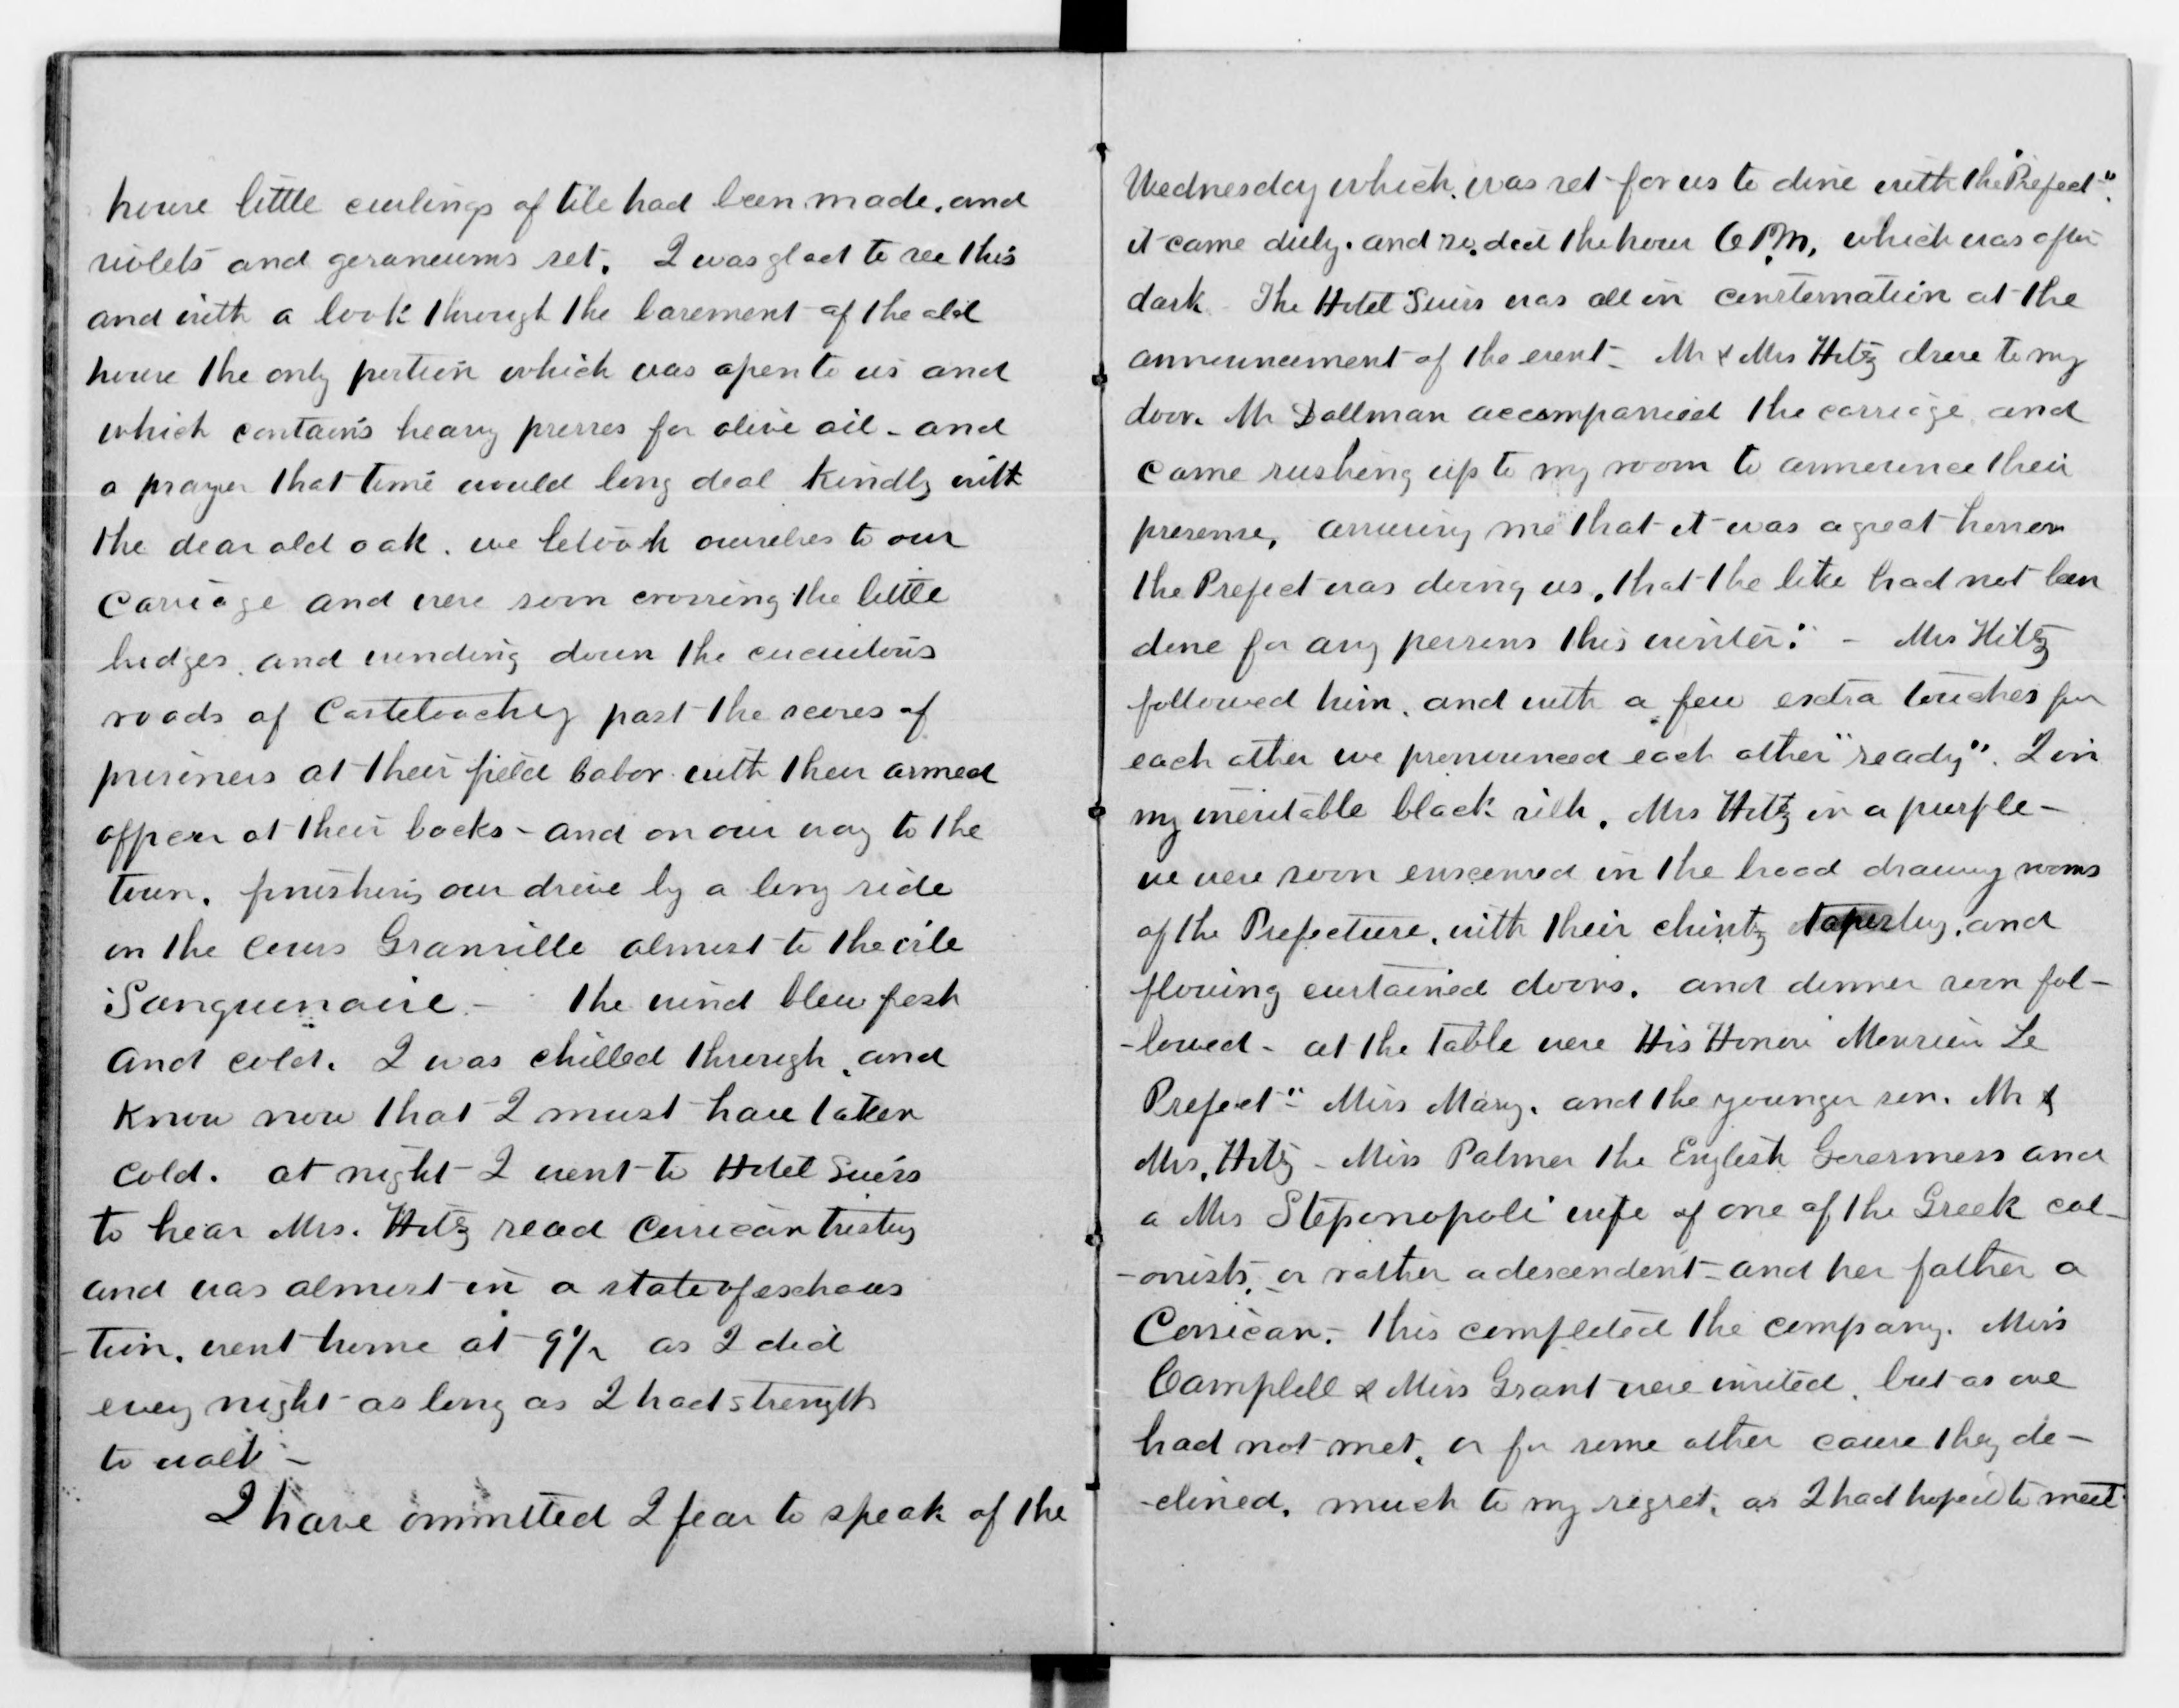 house little curlings of tile had been made, and
violets and geraneums set. I was glad to see this
and with a look through the basement of the old
house the only portion which was open to us and
which contains heavy presses for olive oil - and
a prayer that time would long deal kindly with
the dear old oak. we betook ourselves to our
carriage and were soon crossing the little
bridges. and winding down the circuitous
roads of past the scores of
prisoners at their field labor with their armed
officer at their backs - and on our way to the
town. finishing our drive by a long ride
on the Cours Granville almost to the isle
Sanguinaire - the wind blew fresh
and cold. I was chilled through, and
know now that I must have taken
cold. at night I went to Hotel Suiss
to hear Mrs. Hitz read Corsican history
and was almost in a state of exhaus
-tion. went home at 9½ as I did
every night as long as I had strength
to walk -
I have ommitted I fear to speak of the
Wednesday which was set for us to dine with the "Prefect".
it came duly. and so did the hour 6 P.M, which was after
dark - The Hotel Suiss was all in consternation at the
announcement of the event - Mr & Mrs Hitz drove to my
door. Mr Dallman accompanied the carriage and
came rushing up to my room to announce their
presense, assuring me "that it was a great honor
the Prefect was doing us, that the like had not been
done for any persons this winter." - Mrs Hitz
followed him, and with a few extra touches for
each other we pronounced each other "ready". I in
my inevitable black silk, Mrs Hitz in a purple -
we were soon ensconsed in the broad drawing rooms
of the Prefecture, with their chintz tapestry, and
flowing curtained doors. and dinner soon fol-
-lowed - at the table were His Honor Monsieur Le
Prefect" - Miss Mary. and the younger son. Mr &
Mrs. Hitz - Miss Palmer the English Governess and
a Mrs Steponopoli wife of one of the Greek col-
-onists, or rather a descendent - and her father a
Corsican. - this completed the company. Miss
Campbell & Miss Grant were invited, but as we
had not met, or for some other cause they de-
-clined, much to my regret, as I had hoped to meet